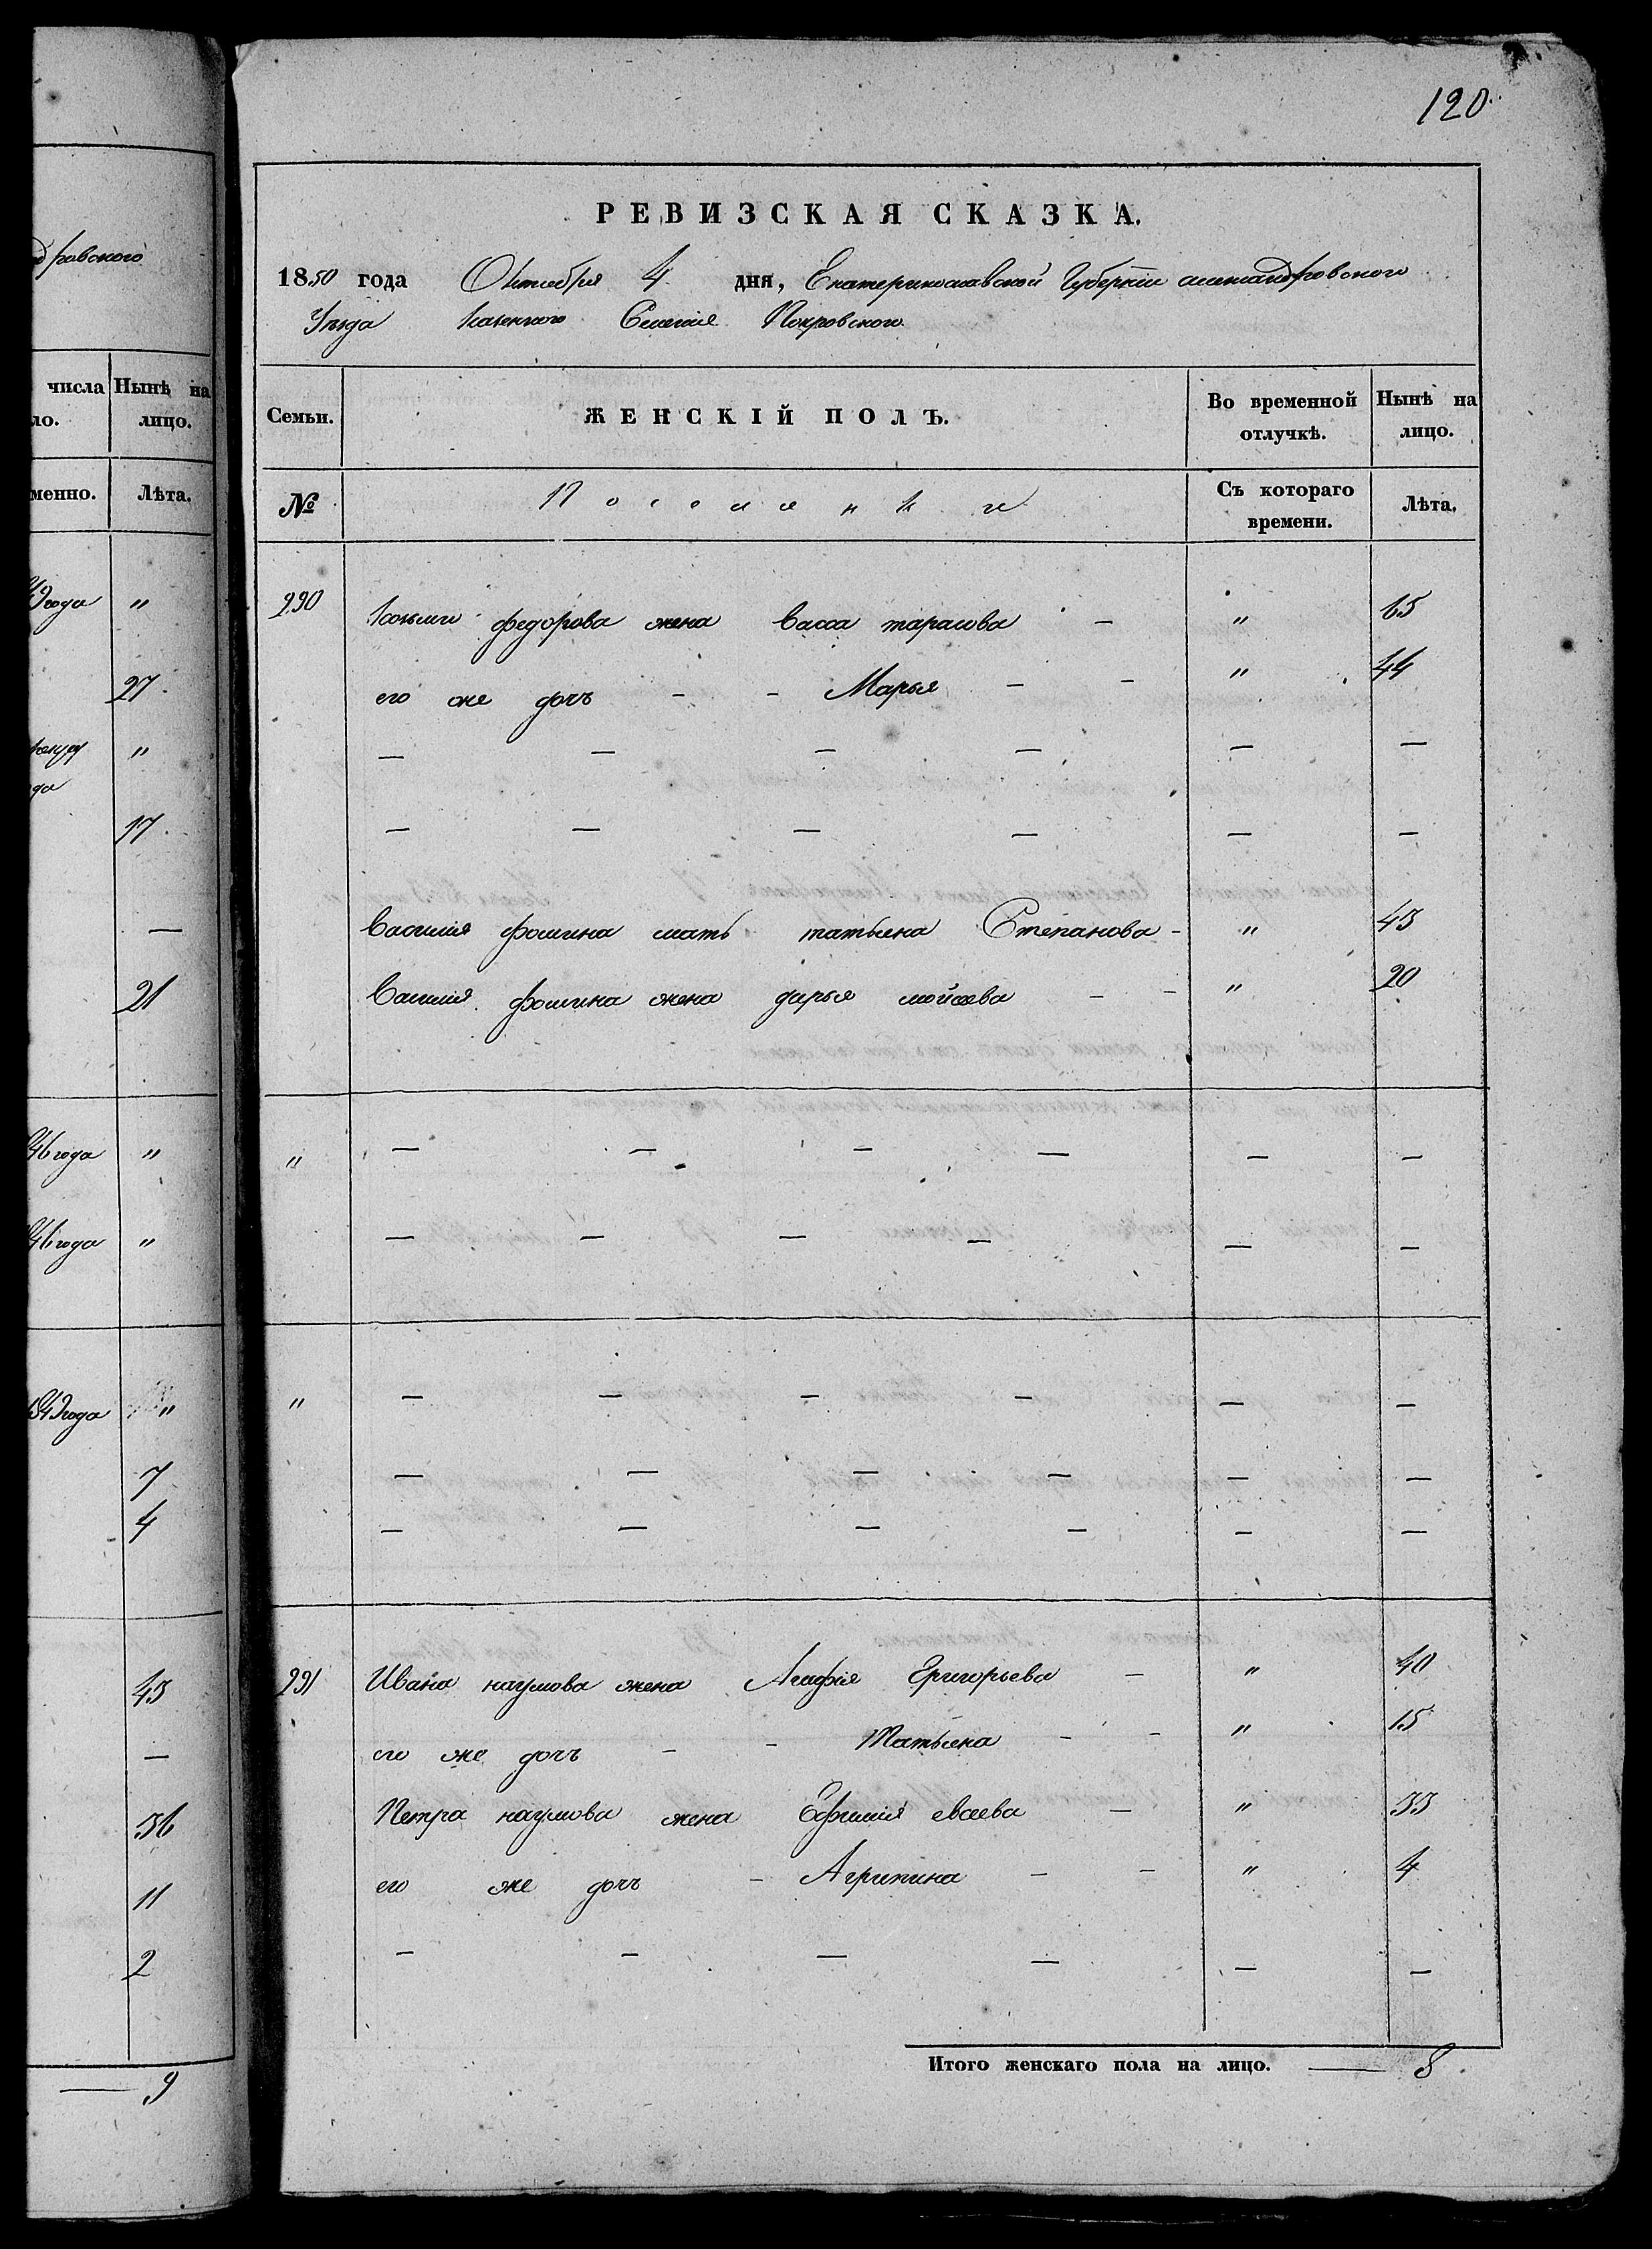 120
РЕВИЗСКАЯ СКАЗКА.
1850 года Октября 4 дня, Екатеринославской Губерніи александровского
Уезда казенного Селенія Покровского
дровского
числа Нынѣ на
ло. лицо.
менно. Лѣта.
Семьи. ЖЕНСКІЙ ПОЛЪ. Во временной отлучкѣ. Нынѣ на лицо.
№ Поселянки Съ котораго времени. Лѣта.
года "
27
"
да
17
—
21
46 года "
46 года "
года "
7
4
45
—
36
11
2
— 9
290 Козьми федорова жена Васса тарасова — " 65
его же дочъ - - Марья - - " 44
— — — — — —
— — — — — —
Василия фомина мать татьяна Степанова - " 43
Василия фомина жена дарья мойсеева - - " 20
" — — — — — —
— — — — — —
" — — — — — —
— — — — — —
— — — — — —
291 Ивана наумова жена Агафія Григорьева — " 40
его же дочъ - - Татьяна - - " 15
Петра наумова жена Ефимія евсеева — " 33
его же дочъ - Агрипина - - " 4
— — — — — —
Итого женскаго пола на лицо. — 8